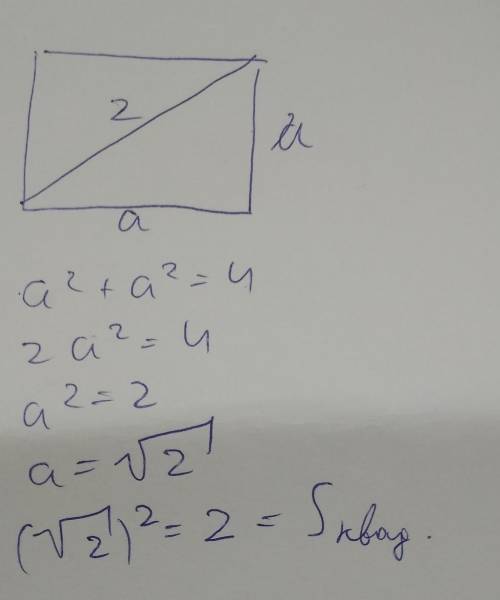 2
a
a
a² + a² = 4
2a² = 4
a² = 2
a = √2
(√2)² = 2 = Sквад.